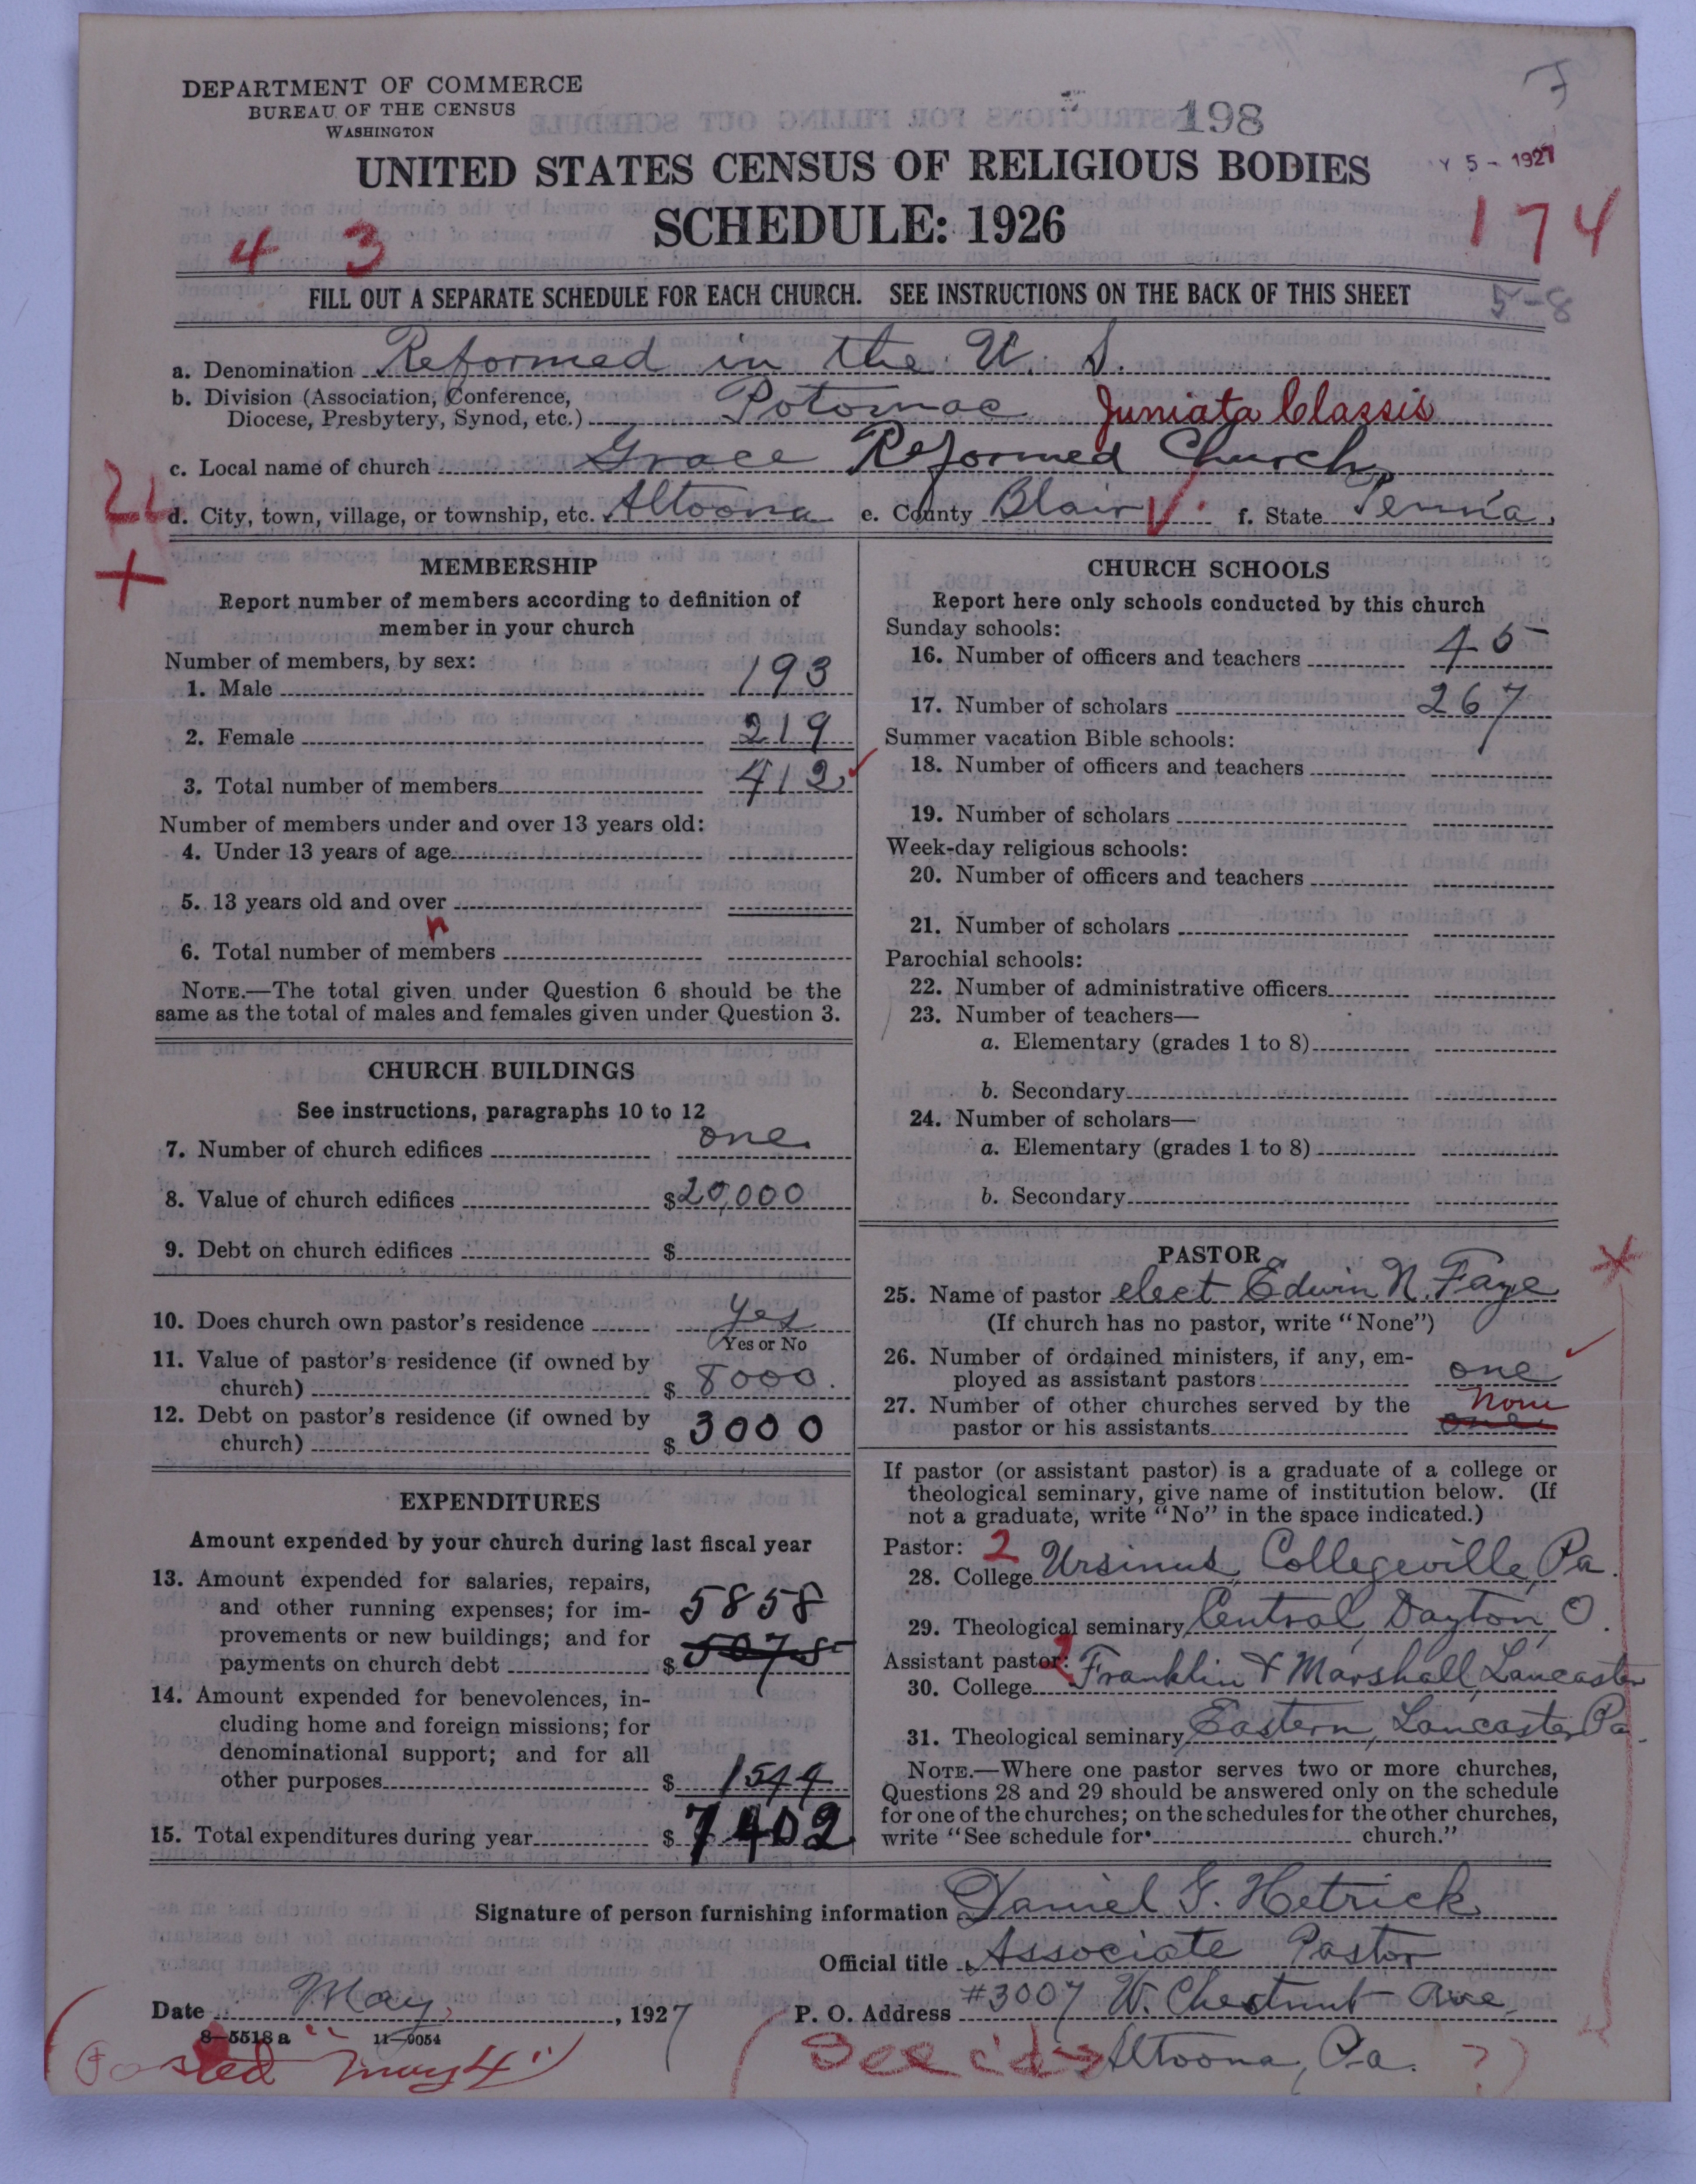 DEPARTMENT OF COMMERCE
BUREAU OF THE CENSUS
WASHINGTON
198
UNITED STATES CENSUS OF RELIGIOUS BODIES
Y 5 - 1927
SCHEDULE: 1926
174
4 3
FILL OUT A SEPARATE SCHEDULE FOR EACH CHURCH. SEE INSTRUCTIONS ON THE BACK OF THIS SHEET
5-8
a. Denomination Reformed in the U. S.
b. Division (Association, Conference,
Diocese, Presbytery, Synod, etc.) Potomac Juniata Classis
c. Local name of church Grace Reformed Church
d. City, town, village, or township, etc. Altoona e. County Blair f. State Penn'a.
MEMBERSHIP
Report number of members according to definition of
member in your church
Number of members, by sex:
1. Male 193
2. Female 219
3. Total number of members 412
Number of members under and over 13 years old:
4. Under 13 years of age
5. 13 years old and over
n
6. Total number of members
NOTE.—The total given under Question 6 should be the
same as the total of males and females given under Question 3.
CHURCH BUILDINGS
See instructions, paragraphs 10 to 12
7. Number of church edifices one
8. Value of church edifices $20,000
9. Debt on church edifices $
10. Does church own pastor's residence Yes
Yes or No
11. Value of pastor's residence (if owned by
church) $ 8000.
12. Debt on pastor's residence (if owned by
church) $ 3000
EXPENDITURES
Amount expended by your church during last fiscal year
13. Amount expended for salaries, repairs,
and other running expenses; for im-
5858
provements or new buildings; and for
payments on church debt $ 5075
14. Amount expended for benevolences, in-
cluding home and foreign missions; for
denominational support; and for all
other purposes $ 1544
15. Total expenditures during year $ 7402
CHURCH SCHOOLS
Report here only schools conducted by this church
Sunday schools:
16. Number of officers and teachers 45
17. Number of scholars 267
Summer vacation Bible schools:
18. Number of officers and teachers
19. Number of scholars
Week-day religious schools:
20. Number of officers and teachers
21. Number of scholars
Parochial schools:
22. Number of administrative officers
23. Number of teachers—
a. Elementary (grades 1 to 8)
b. Secondary
24. Number of scholars—
a. Elementary (grades 1 to 8)
b. Secondary
PASTOR
25. Name of pastor elect Edwin N. Faye
(If church has no pastor, write "None")
26. Number of ordained ministers, if any, em-
ployed as assistant pastors one
27. Number of other churches served by the None
pastor or his assistants one
If pastor (or assistant pastor) is a graduate of a college or
theological seminary, give name of institution below. (If
not a graduate, write "No" in the space indicated.)
Pastor: 2
28. College Ursinus, Collegeville, Pa.
29. Theological seminary Central, Dayton, O.
Assistant pastor: 2
30. College Franklin & Marshall, Lancaster
31. Theological seminary Eastern, Lancaster Pa.
NOTE.—Where one pastor serves two or more churches,
Questions 28 and 29 should be answered only on the schedule
for one of the churches; on the schedules for the other churches,
write "See schedule for church."
Signature of person furnishing information Daniel G. Hetrick
Official title Associate Pastor
Date May, 1927 P. O. Address #3007 W. Chestnut Ave,
8-5518 a 11-9054
Altoona, Pa.
(Posted "May 4")